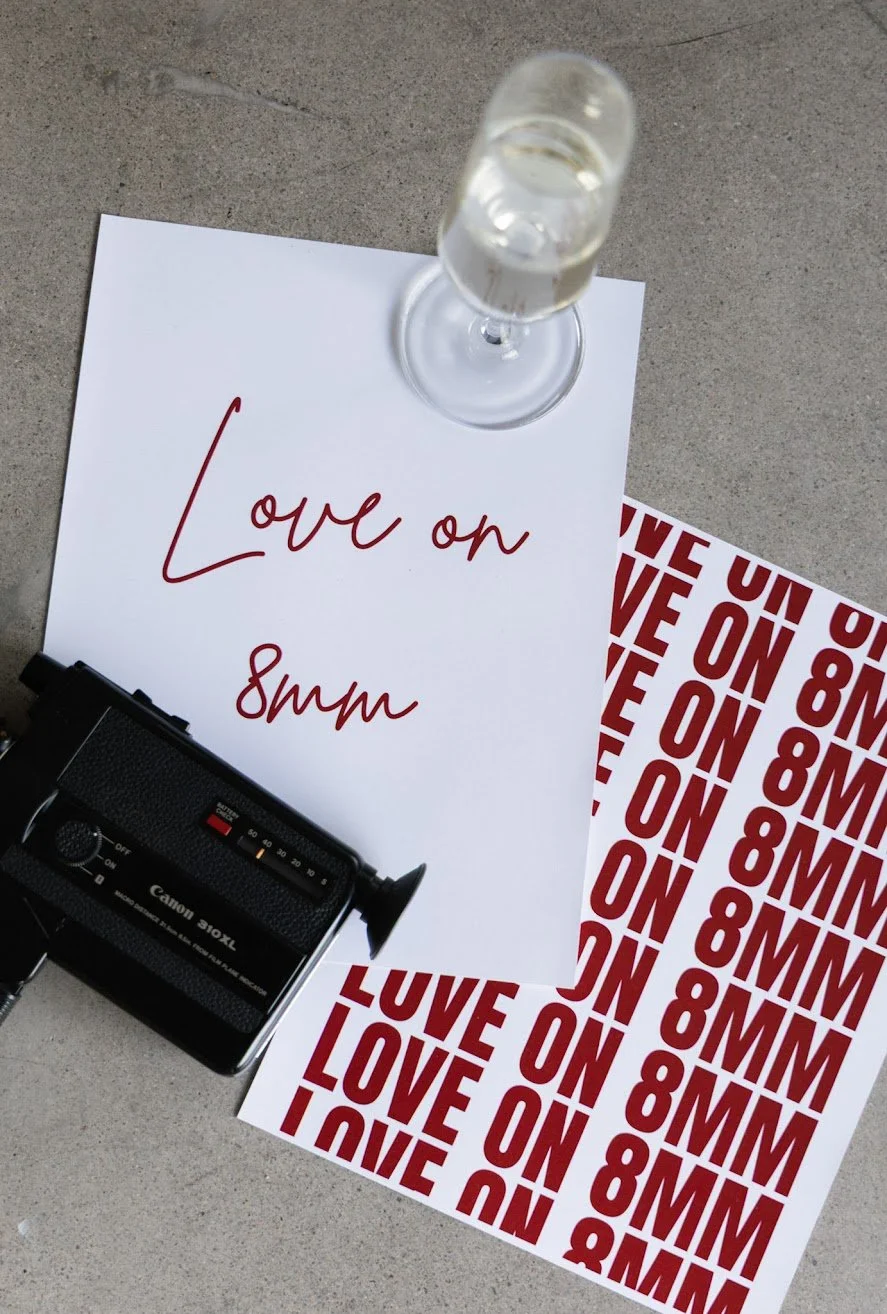 Love on
8mm
BATTERY
CHECK
50 40 30 20 10 5
OFF
ON
Canon 310XL
FROM FILM PLANE INDICATOR
OVE ON 8M
LOVE ON 8MM
LOVE ON 8MM
LOVE ON 8MM
ON 8MM
ON 8MM
LOVE ON 8MM
LOVE ON 8MM
LOVE ON 8MM